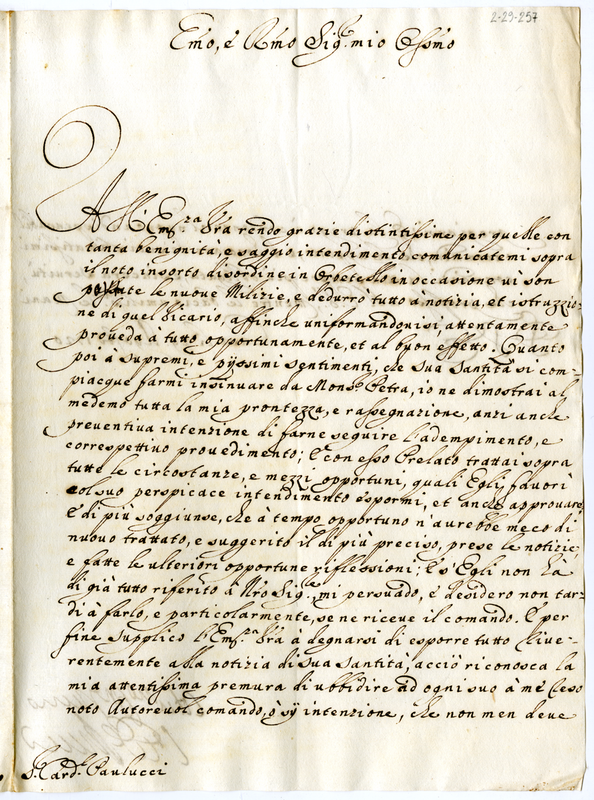 2-29-257
Em̃o, e Rm̃o Sig.r mio Oss̃mo
All' Em.za Vr̃a rendo grazie distintissime per quelle con
tanta benignità, e saggio intendimento, comunicatemi sopra
il noto insorto disordine in Orbetello in occasione vi son
portate le nuove Milizie, e dedurrò tutto a notizia, et istruzzio=
ne di quel Vicario, affinche uniformandovisi, attentamente
proueda à tutto, opportunamente, et al buon effetto. Quanto
poi à supremi, e pijssimi sentimenti, che sua Santità si com=
piacque farmi insinuare da Mons.r Petra, io ne dimostrai al
medemo tutta la mia prontezza, e rassegnazione, anzi anche
preuentiua intenzione di farne seguire l'adempimento, e
correspettiuo prouedimento; E con esso Prelato trattai sopra
tutte le circostanze, e mezzi opportuni, quali Egli fauorì
col suo perspicace intendimento espormi, et anche approuare,
E di più soggiunse, che à tempo opportuno n'aurebbe meco di
nuouo trattato, e suggerito il di più preciso, prese le notizie,
e fatte le ulteriori opportune riflessioni; E s'Egli non hà
di già tutto riferito à Nr̃o Sig.re, mi persuado, e desidero non tar=
di à farlo, e particolarmente, se ne riceue il comando. E per
fine supplico l'Em.za Vr̃a à degnarsi di esporre tutto riue=
rentemente alla notizia di sua santità, acciò riconosca la
mia attentissima premura di ubbidire ad ogni suo à me reso
noto Autoreuol comando, ò sij intenzione, che non men deue
S.r Card.l Paulucci